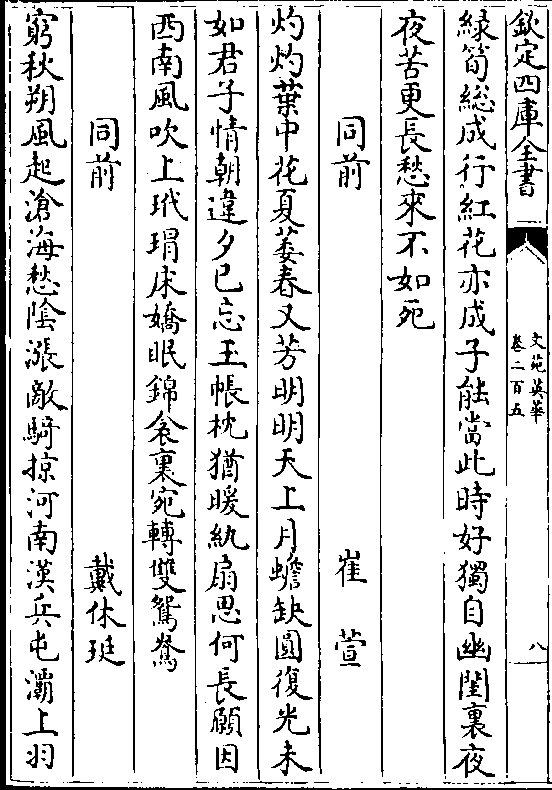 欽定四庫全書
文苑英華
卷二百五
八
緑筍総成行紅花亦成子能當此時好獨自幽閨裏夜
夜苦更長愁來不如死
同前 崔萱
灼灼葉中花夏萎春又芳明明天上月蟾缺圓復光未
如君子情朝違夕已忘玉帳枕猶暖紈扇思何長願因
西南風吹上玳瑁床嬌眠錦衾裏宛轉雙鴛鴦
同前 戴休珽
窮秋朔風起滄海愁陰漲敵騎掠河南漢兵屯灞上羽